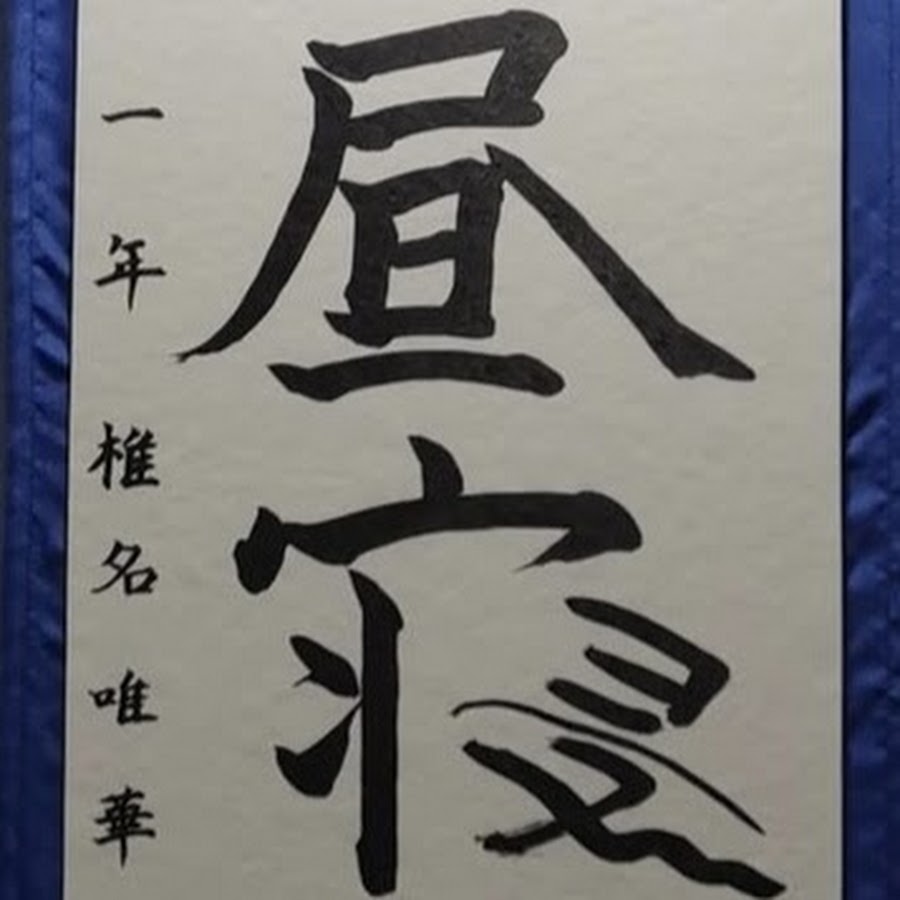 昼寝
一年 椎名唯華